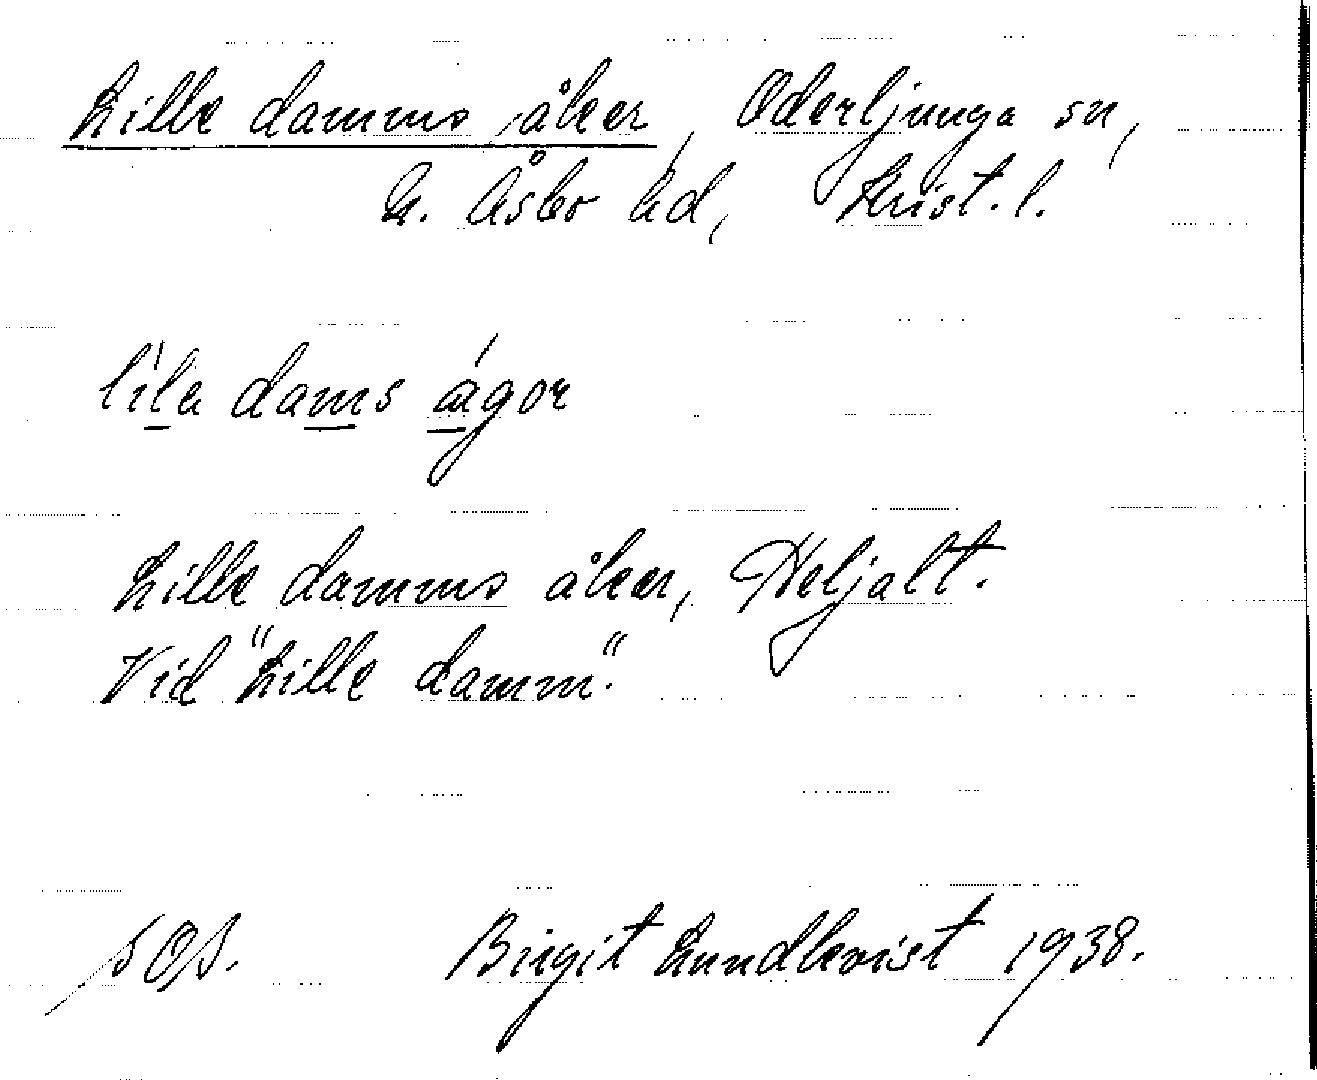 Lille damms åker, Oderljunga sn,
N. Åsbo hd, Krist. l.
lila dams ågor
Lille damms åker, Heljalt.
Vid "Lille damm".
Birgit Lundkvist 1938.